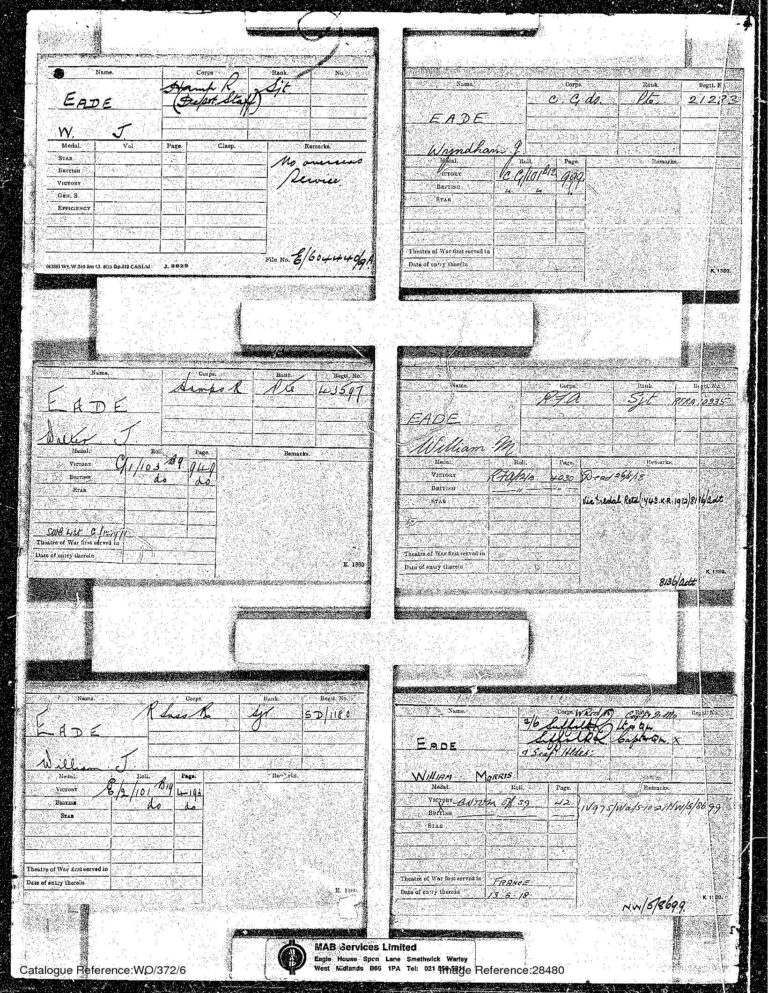 Name. Corps. Rank. No.
EADE Hamp R Sjt
(Depot Staff)
W. J
Medal. Vol. Page. Clasp. Remarks.
STAR No overseas
BRITISH Service
VICTORY
GEN. S.
EFFICIENCY
File No.
J. 2629
Name. Corps. Rank. Regtl. No.
C. Gds. Pte 21273
EADE
Wyndham J.
Medal. Roll. Page. Remarks.
VICTORY C.G/101 B12
BRITISH " " "
STAR
Theatre of War first served in
Date of entry therein
K. 1380.
Name. Corps. Rank. Regtl. No.
EADE Hamps R Pte 43597
Walter J
Medal. Roll. Page. Remarks.
VICTORY C/1/103 B9 949
BRITISH do do
STAR
SWB List
Theatre of War first served in
Date of entry therein
K. 1380
Name. Corps. Rank. Regtl. No.
RFA Sjt
EADE
William M
Medal. Roll. Page. Remarks.
VICTORY 4030
BRITISH
STAR
Theatre of War first served in
Date of entry therein
K. 1380.
8136/Adt
Name. Corps. Rank. Regtl. No.
EADE R Suss R Sjt SD/1180
William J.
Medal. Roll. Page. Remarks.
VICTORY E/2/101 B19
BRITISH do do
STAR
Theatre of War first served in
Date of entry therein
K. 1380.
Name. Corps. Rank. Regtl. No.
2/6 Suffolk R
Suffolk R X
EADE
WILLIAM MORRIS
Medal. Roll. Page. Remarks.
VICTORY 42
BRITISH
STAR
Theatre of War first served in FRANCE
Date of entry therein 13-6-18
K. 1380.
NW/5/8699
MAB Services Limited
Eagle House Spon Lane Smethwick Warley
West Midlands B66 1PA Tel: 021
Catalogue Reference:WO/372/6 Image Reference:28480